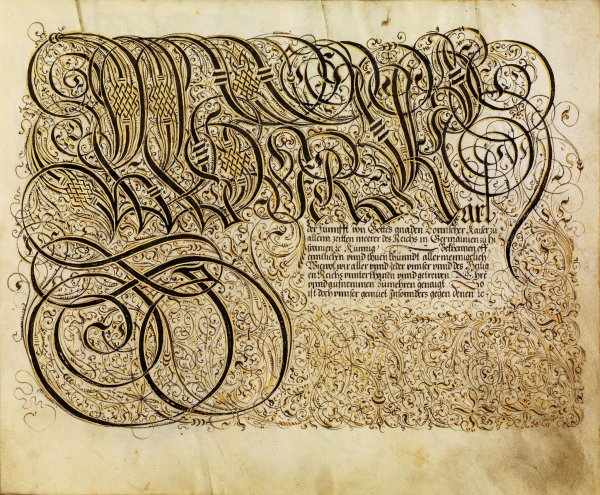 Karl
der funfft von Gottes gnaden Romischer Kaiser zu
allenn zeitten meerer des Reichs in Germannien zu hi
spanien zc Kunnig Bekennen off
enntlichen vnnd thuen khunndt aller menniglich
Wiewol wir aller vnnd jeder vnnser vnnd des Heylig
en Reichs vnnterthanen vnnd getreuen Ehre
vnnd aufnemmen zumehren genaigt So
ist doch vnnser gemüet Insonders gegen denen zc